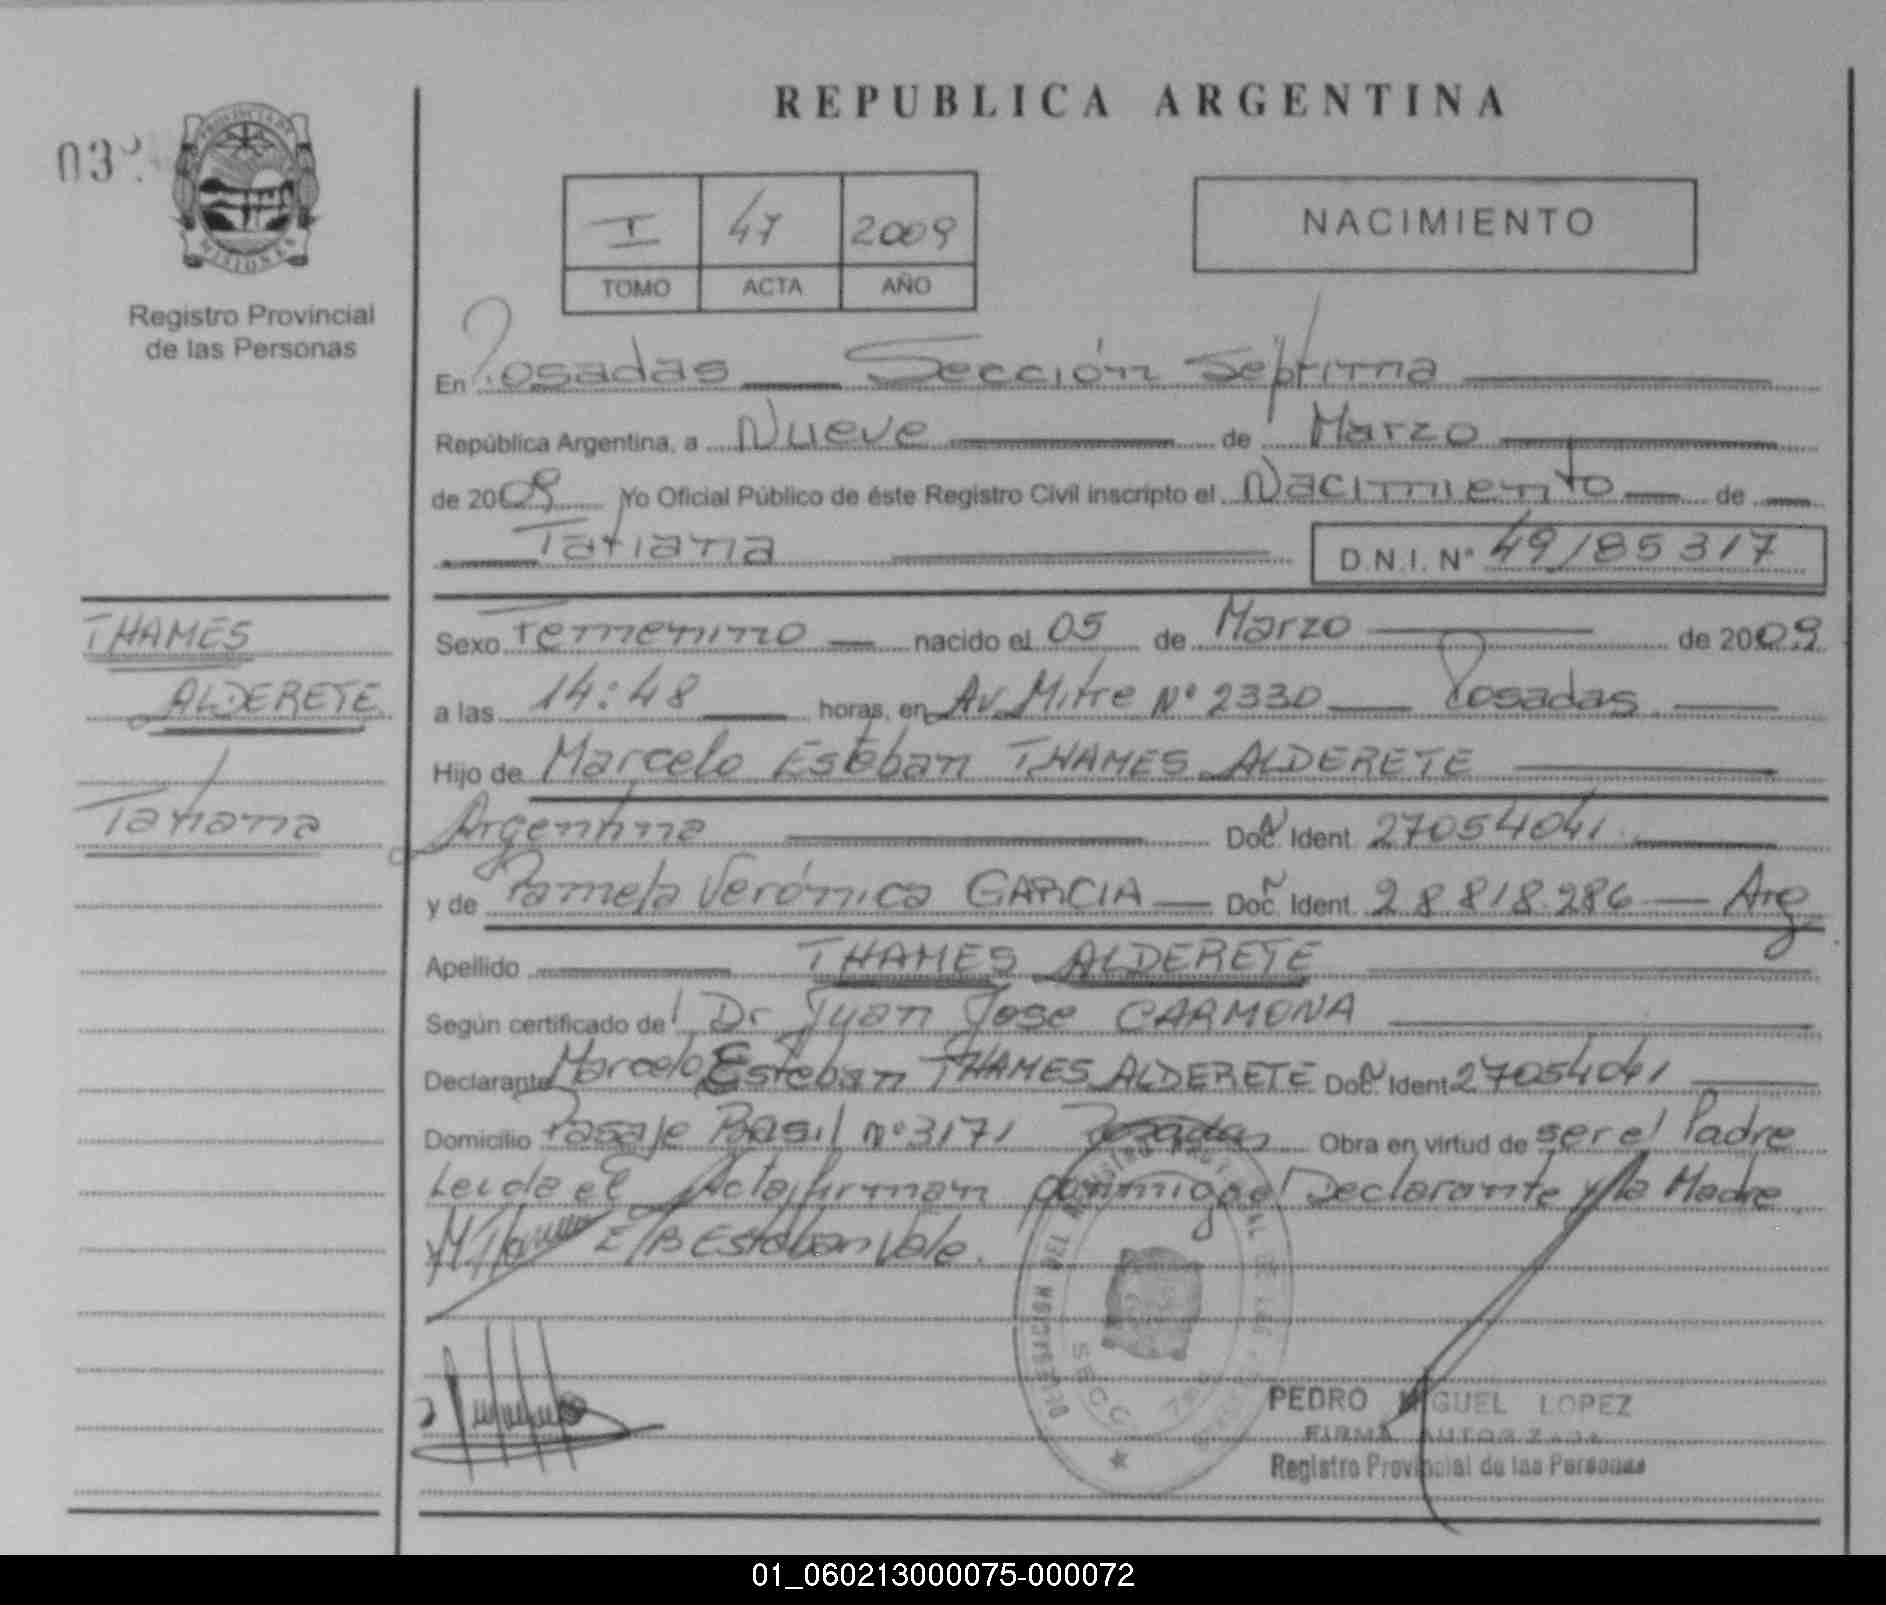 REPUBLICA ARGENTINA
03
PROVINCIA DE MISIONES
I 47 2009
TOMO ACTA AÑO
NACIMIENTO
Registro Provincial
de las Personas
En Posadas Sección Séptima
República Argentina, a Nueve de Marzo
de 2009 Yo Oficial Público de éste Registro Civil inscripto el Nacimiento de
Tatiana D.N.I. Nº 49185317
THAMES
ALDERETE
Tatiana
Sexo Femenino nacido el 05 de Marzo de 2009
a las 14:48 horas, en Av. Mitre Nº 2330 Posadas
Hijo de Marcelo Esteban THAMES ALDERETE
Argentina Doc. Ident. 27054041
y de Pamela Verónica GARCIA Doc. Ident. 28.818.286 Arg.
Apellido THAMES ALDERETE
Según certificado del Dr Juan Jose CARMONA
Declarante Marcelo Esteban THAMES ALDERETE Doc. Ident 27054041
Domicilio Pasaje Basil nº 3171 Posadas Obra en virtud de ser el Padre
Leida el Acta, firman conmigo el Declarante y la Madre
E/R Esteban Vale.
PEDRO MIGUEL LOPEZ
FIRMA AUTORIZADA
Registro Provincial de las Personas
01_060213000075-000072